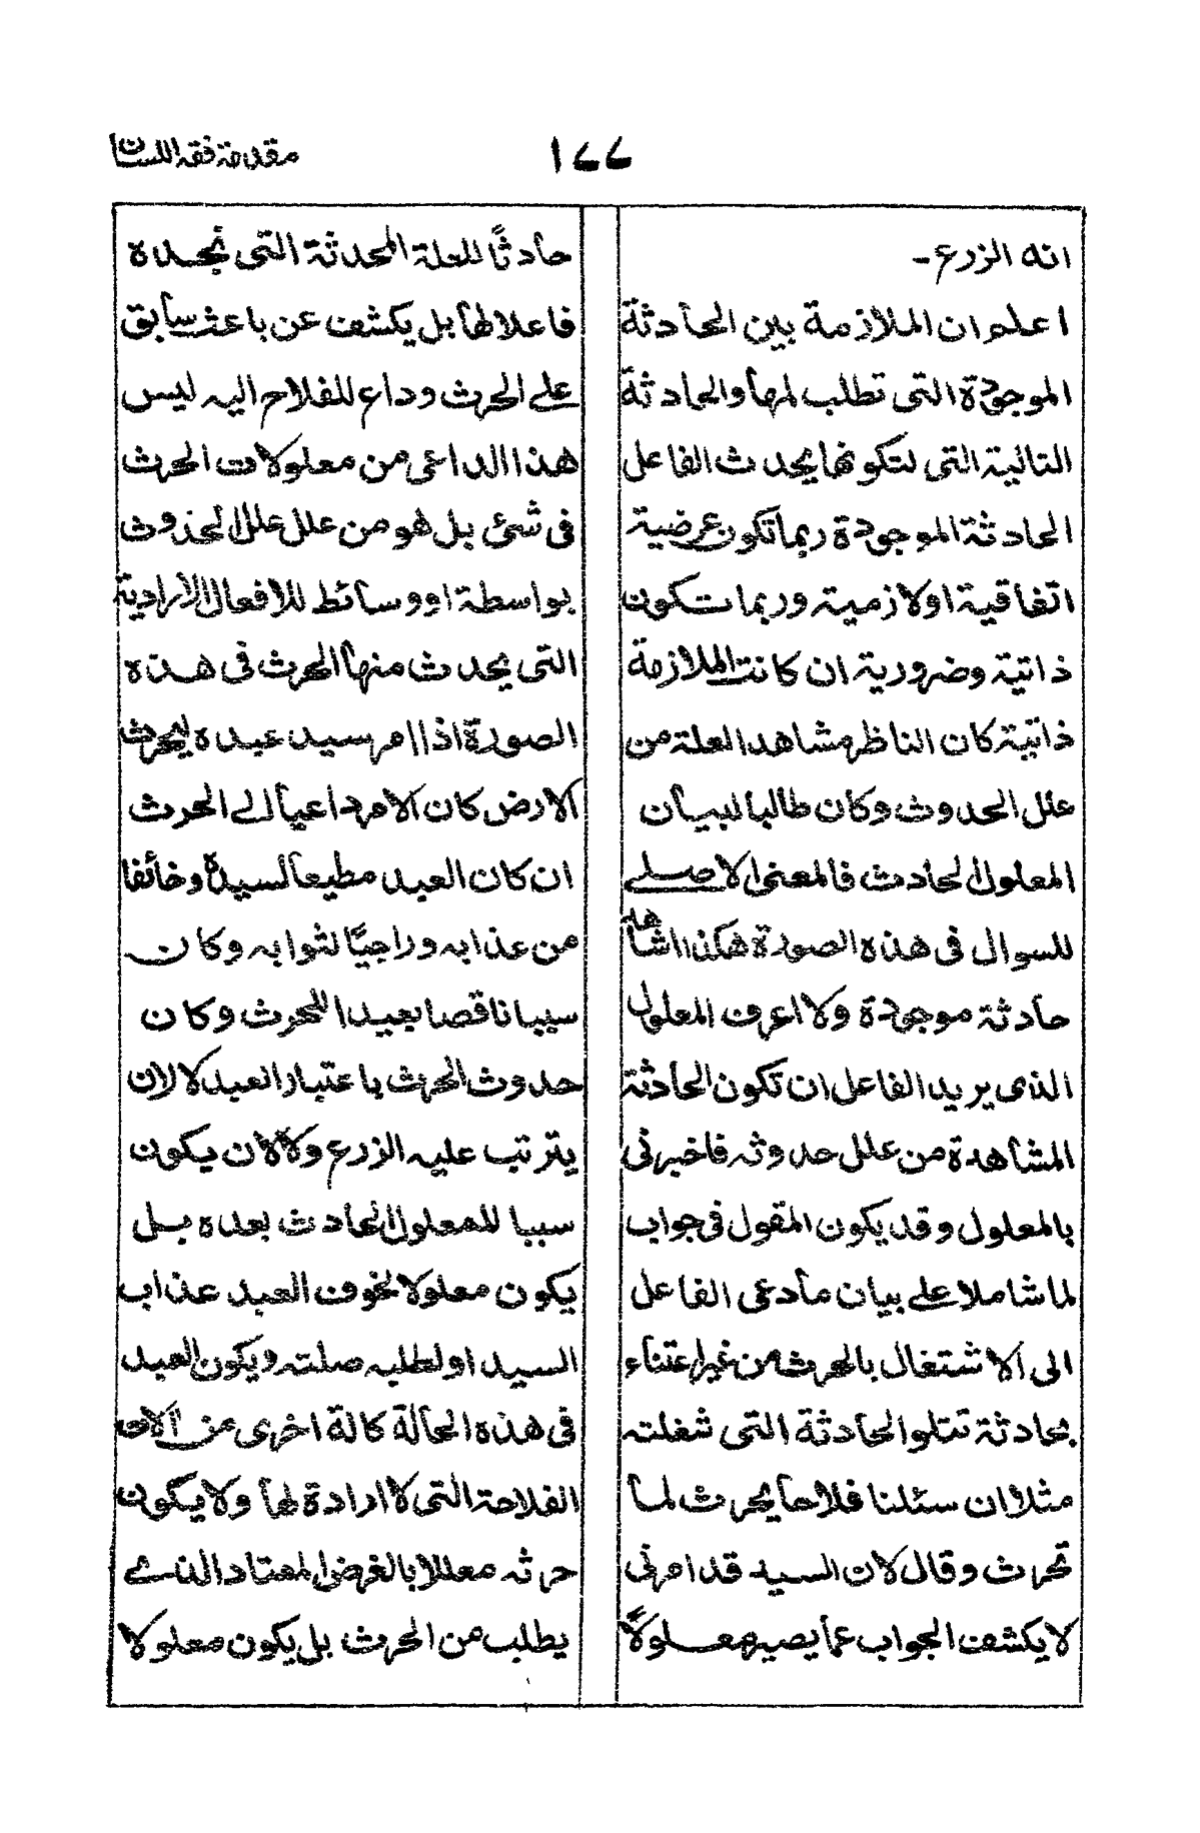 مقدمة فقه اللسان
١٧٧
انه الزرع۔
اعلم ان الملازمة بين الحادثة
الموجودة التى تطلب لمها والحادثة
التالية التى لتكونها يحدث الفاعل
الحادثة الموجودة ربما تكون عرضية
اتفاقية اولازمية وربما تكون
ذاتية وضرورية ان كانت الملازمة
ذاتية كان الناظر مشاهدا لعلة من
علل الحدوث وكان طالبا لبيان
المعلول الحادث فالمعنى الاصلے
للسوال فى هذه الصورة هكذا اشاهد
حادثة موجودة ولا اعرف المعلول
الذى يريد الفاعل ان تكون الحادثة
المشاهدة من علل حدوثه فاخبرنى
بالمعلول وقد يكون المقول فى جواب
لما شاملا علے بيان ما دعى الفاعل
الى الاشتغال بالحرث من غير اعتناء
بحادثة تتلو الحادثة التى شغلته
مثلا ان سئلنا فلاحا يحرث لما
تحرث وقال لان السيد قد امرنى
لا يكشف الجواب عما يصير معلولاً
حادثاً للعلة المحدثة التى نجده
فاعلا لها بل يكشف عن باعث سابق
علے الحرث وداع للفلاح اليه ليس
هذا الداعى من معلولات الحرث
فى شئ بل هو من علل علل الحدوث
بواسطة او وسائط للافعال الارادية
التى يحدث منها الحرث فى هذه
الصورة اذا امر سيد عبده ليحرث
الارض كان الامر داعيا الے الحرث
ان كان العبد مطيعا لسيده وخائفا
من عذابه وراجيًا لثوابه وكان
سببا ناقصا بعيدا للحرث وكان
حدوث الحرث باعتبار العبد لا لان
يترتب عليه الزرع ولا لان يكون
سببا للمعلول الحادث بعده بل
يكون معلولا لخوف العبد عذاب
السيد او لطلبه صلته ويكون العبد
فى هذه الحالة كالة اخرى من آلات
الفلاحة التى لا ارادة لها ولا يكون
حرثه معللا بالغرض المعتاد الذے
يطلب من الحرث بل يكون معلولا